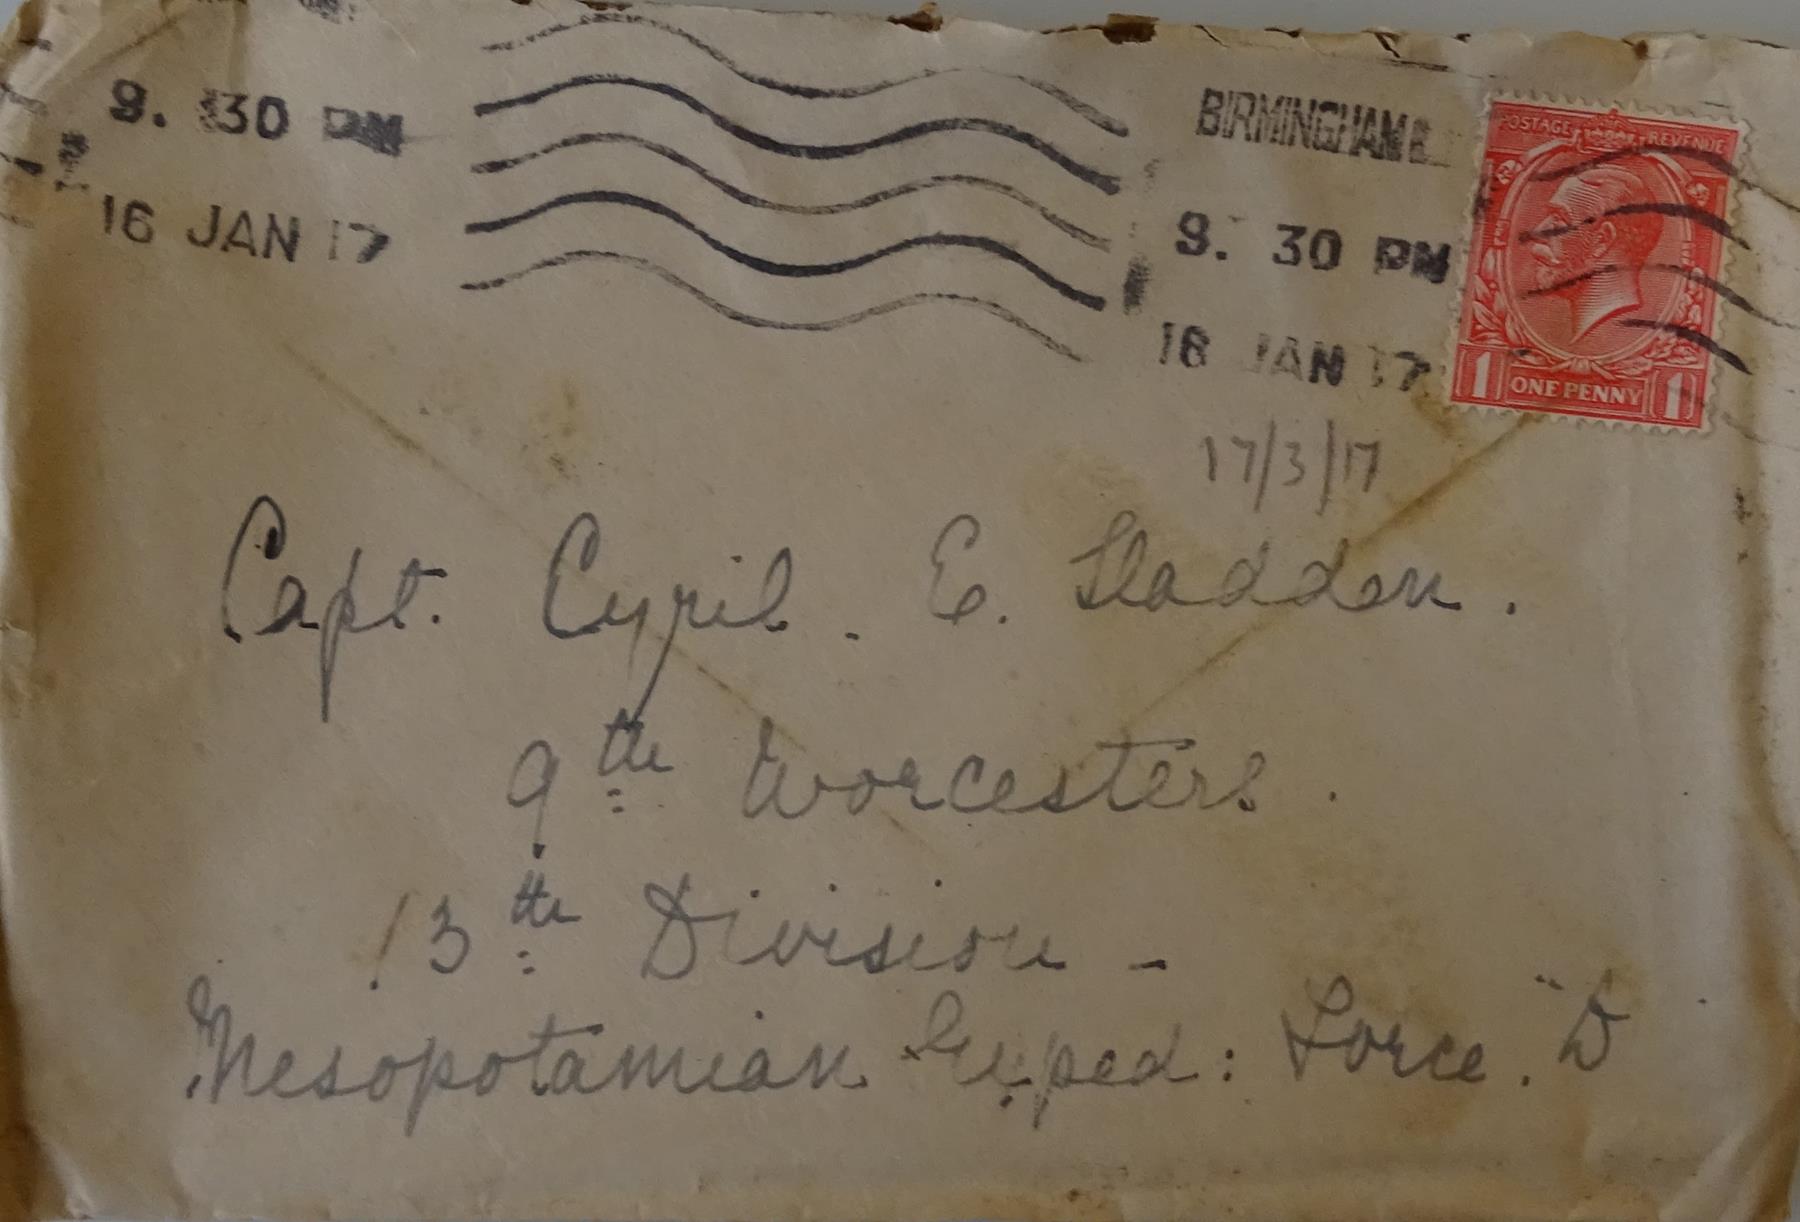 9. 30 PM
16 JAN 17
BIRMINGHAM
9. 30 PM
16 JAN 17
POSTAGE REVENUE
1 ONE PENNY 1
17/3/17
Capt. Cyril. E. Sladden.
9th Worcesters.
13th Division -
Mesopotamian Exped: Force. "D"